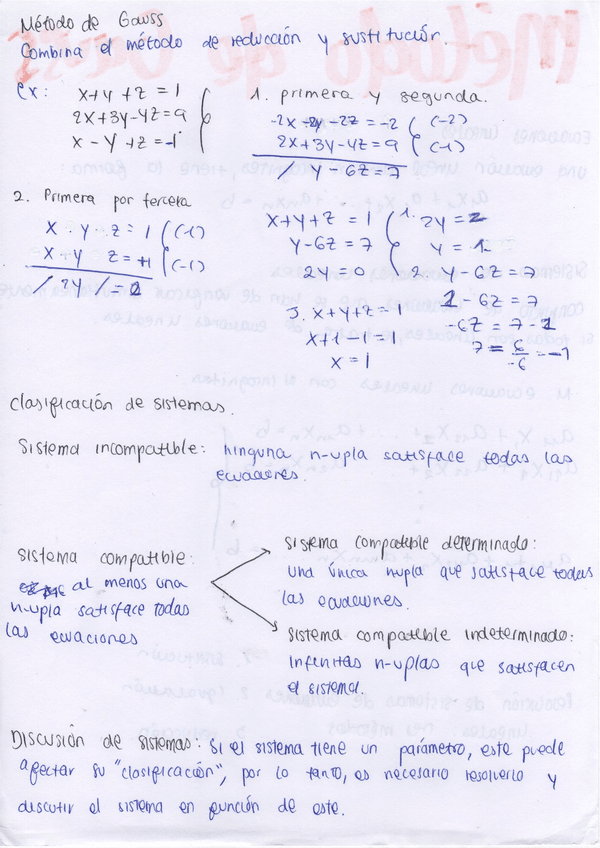 Método de Gauss
Combina el método de reducción y sustitución.
ex: x+y+z = 1
2x+3y-4z = 9
x - y + z = -1
1. primera y segunda.
-2x -2y -2z = -2 (-2)
2x+3y-4z = 9 (-1)
/ y - 6z = 7
2. Primera por tercera
x · y · z = 1 (-1)
x - y z = +1 (-1)
/ 2y / = 2
x+y+z = 1
y-6z = 7
2y = 0
1. 2y = 2
y = 1
2. y - 6z = 7
1 - 6z = 7
-6z = 7 - 1
7 = 6/-6 = -1
3. x+y+z = 1
x+1-1 = 1
x = 1
Clasificación de sistemas.
Sistema incompatible: ninguna n-upla satisface todas las
ecuaciones.
Sistema compatible:
al menos una
n-upla satisface todas
las ecuaciones
Sistema compatible determinado:
una única nupla que satisface todas
las ecuaciones.
Sistema compatible indeterminado:
Infinitas n-uplas que satisfacen
el sistema.
Discusión de sistemas: si el sistema tiene un parámetro, este puede
afectar su "clasificación", por lo tanto, es necesario resolverlo y
discutir el sistema en función de este.